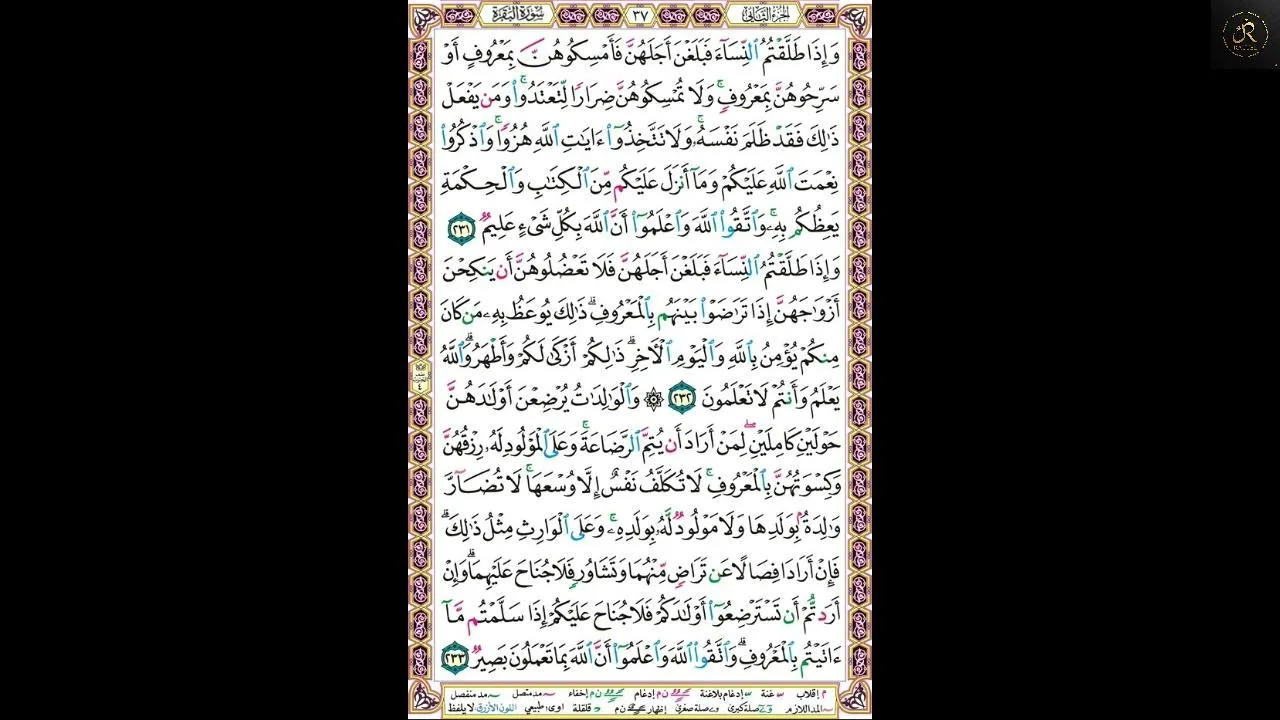 الجزء الثاني
٣٧
سورة البقرة
وَإِذَا طَلَّقۡتُمُ ٱلنِّسَآءَ فَبَلَغۡنَ أَجَلَهُنَّ فَأَمۡسِكُوهُنَّ بِمَعۡرُوفٍ أَوۡ
سَرِّحُوهُنَّ بِمَعۡرُوفٖۚ وَلَا تُمۡسِكُوهُنَّ ضِرَارٗا لِّتَعۡتَدُواْۚ وَمَن يَفۡعَلۡ
ذَٰلِكَ فَقَدۡ ظَلَمَ نَفۡسَهُۥۚ وَلَا تَتَّخِذُوٓاْ ءَايَٰتِ ٱللَّهِ هُزُوٗاۚ وَٱذۡكُرُواْ
نِعۡمَتَ ٱللَّهِ عَلَيۡكُمۡ وَمَآ أَنزَلَ عَلَيۡكُم مِّنَ ٱلۡكِتَٰبِ وَٱلۡحِكۡمَةِ
يَعِظُكُم بِهِۦۚ وَٱتَّقُواْ ٱللَّهَ وَٱعۡلَمُوٓاْ أَنَّ ٱللَّهَ بِكُلِّ شَيۡءٍ عَلِيمٞ ٢٣١
وَإِذَا طَلَّقۡتُمُ ٱلنِّسَآءَ فَبَلَغۡنَ أَجَلَهُنَّ فَلَا تَعۡضُلُوهُنَّ أَن يَنكِحۡنَ
أَزۡوَٰجَهُنَّ إِذَا تَرَٰضَوۡاْ بَيۡنَهُم بِٱلۡمَعۡرُوفِۗ ذَٰلِكَ يُوعَظُ بِهِۦ مَن كَانَ
مِنكُمۡ يُؤۡمِنُ بِٱللَّهِ وَٱلۡيَوۡمِ ٱلۡأٓخِرِۗ ذَٰلِكُمۡ أَزۡكَىٰ لَكُمۡ وَأَطۡهَرُۚ وَٱللَّهُ
يَعۡلَمُ وَأَنتُمۡ لَا تَعۡلَمُونَ ٢٣٢ ۞ وَٱلۡوَٰلِدَٰتُ يُرۡضِعۡنَ أَوۡلَٰدَهُنَّ
حَوۡلَيۡنِ كَامِلَيۡنِۖ لِمَنۡ أَرَادَ أَن يُتِمَّ ٱلرَّضَاعَةَۚ وَعَلَى ٱلۡمَوۡلُودِ لَهُۥ رِزۡقُهُنَّ
وَكِسۡوَتُهُنَّ بِٱلۡمَعۡرُوفِۚ لَا تُكَلَّفُ نَفۡسٌ إِلَّا وُسۡعَهَاۚ لَا تُضَآرَّ
وَٰلِدَةُۢ بِوَلَدِهَا وَلَا مَوۡلُودٞ لَّهُۥ بِوَلَدِهِۦۚ وَعَلَى ٱلۡوَارِثِ مِثۡلُ ذَٰلِكَۗ
فَإِنۡ أَرَادَا فِصَالًا عَن تَرَاضٖ مِّنۡهُمَا وَتَشَاوُرٖ فَلَا جُنَاحَ عَلَيۡهِمَاۗ وَإِنۡ
أَرَدتُّمۡ أَن تَسۡتَرۡضِعُوٓاْ أَوۡلَٰدَكُمۡ فَلَا جُنَاحَ عَلَيۡكُمۡ إِذَا سَلَّمۡتُم مَّآ
ءَاتَيۡتُم بِٱلۡمَعۡرُوفِۗ وَٱتَّقُواْ ٱللَّهَ وَٱعۡلَمُوٓاْ أَنَّ ٱللَّهَ بِمَا تَعۡمَلُونَ بَصِيرٞ ٢٣٣
م إقلاب غنة إدغام بلاغنة ن م إدغام ن م إخفاء مد متصل مد منفصل
المد اللازم صلة كبرى صلة صغرى إظهار ن م قلقلة طبيعي اللون الأزرق لا يلفظ